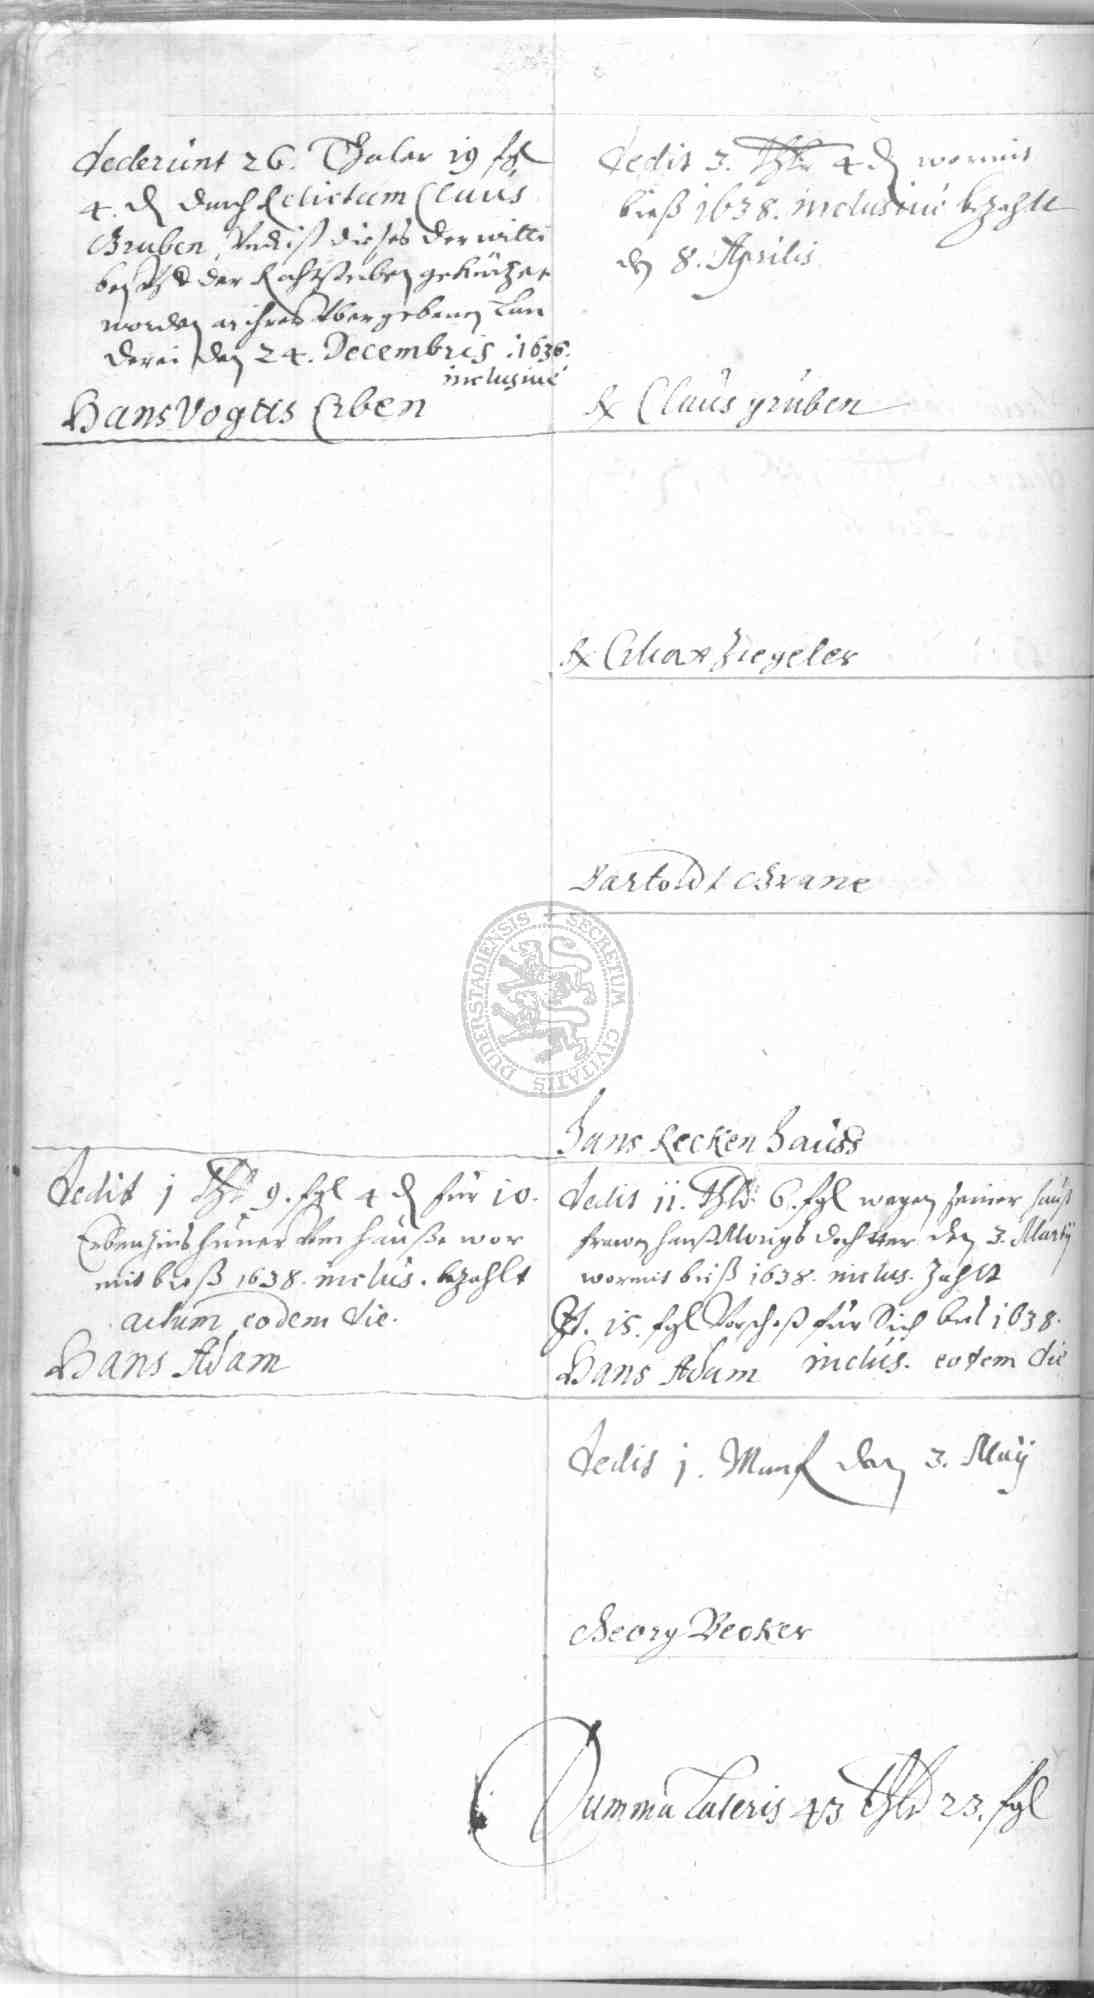 dederunt 26. Thaler 19 fgl
4. ₰ durch Relictam Claus
Gruben, Und ist dieses der witti
ben der Rahtstuben gekürtzet
worden an ihres Vbergebenen Lan
derei den 24. Decembris .1636.
inclusiuè
Hans Vogtts Erben
dedit 3. thlr 4 ₰ wormit
bieß 1638. inclusiuè bezahlt
den 8. Aprilis
Rx Claus gruben
Rx Ziegeler
Bartoldt Grane
Hans Reckenhauss
SECRETUM CIVITATIS DUDERSTADIENSIS
dedit 1 thlr 9. fgl 4 ₰ für 10.
Erbenzins hüner Vom hauße wor
mit bieß 1638. inclus. bezahlt
actum eodem die.
Hans Adam
dedit 11. thlr. 6. fgl wegen seiner hauß
frawen hanß dochtter den 3. Martij
wormit bieß 1638. inclus. Zahlt
It. 15. fgl Vorschoß für Sich 1638.
inclus. eodem die
Hans Adam
dedit 1. Marck den 3. Maij
Georg Becker
Summa Lateris 43 thlr 23. fgl